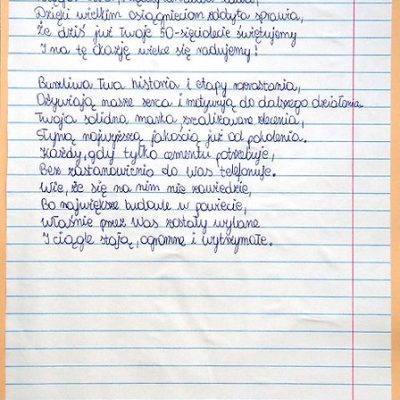 Dzięki wielkim osiągnięciom zdobyta sprawia,
Że dziś już Twoje 50-sięciolecie świętujemy
I na tę okazję wielce się radujemy!
Burzliwa Twa historia i etapy powstania,
Ożywiają nasze serca i motywują do dalszego działania.
Twoja solidna marka zrealizowane zlecenia,
Słyną najwyższą jakością już od pokolenia.
Każdy, gdy tylko cementu potrzebuje,
Bez zastanowienia do Was telefonuje.
Wie, że się na nim nie zawiedzie,
Bo największe budowle w powiecie,
Właśnie przez Was zostały wylane
I ciągle stoją, ogromne i wytrzymałe.